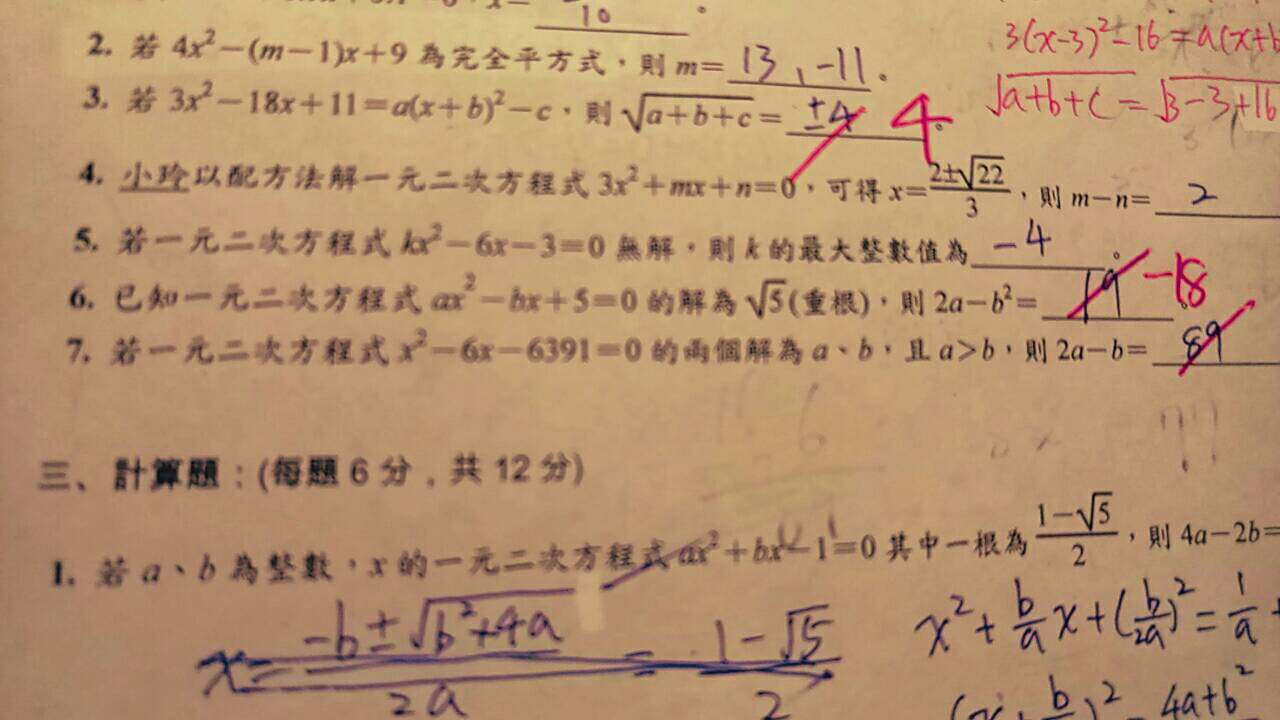 10
2. 若 4x²−(m−1)x+9 為完全平方式，則 m= 13 , −11 。
3(x−3)²−16 = a(x+b
3. 若 3x²−18x+11=a(x+b)²−c，則 √(a+b+c)= ±4 4 。
√(a+b+c) = √(3−3+16
4. 小玲以配方法解一元二次方程式 3x²+mx+n=0，可得 x=(2±√22)/3，則 m−n= 2
5. 若一元二次方程式 kx²−6x−3=0 無解，則 k 的最大整數值為 −4 。
6. 已知一元二次方程式 ax²−bx+5=0 的解為 √5(重根)，則 2a−b²= 19 −18 。
7. 若一元二次方程式 x²−6x−6391=0 的兩個解為 a、b，且 a>b，則 2a−b= 89
三、計算題：(每題 6 分，共 12 分)
1. 若 a、b 為整數，x 的一元二次方程式 ax²+bx−1=0 其中一根為 (1−√5)/2，則 4a−2b=
x= (−b±√(b²+4a))/2a = (1−√5)/2
x²+(b/a)x+(b/2a)²=1/a+